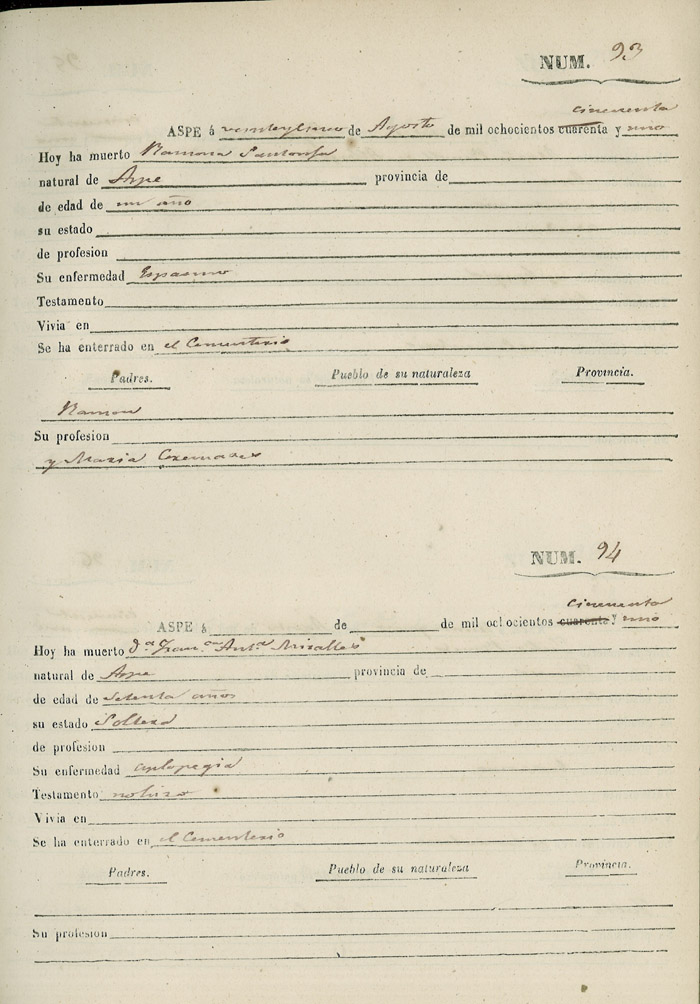 NUM. 93
cincuenta
ASPE á veinteycinco de Agosto de mil ochocientos cuarenta y uno
Hoy ha muerto Ramona Santonja
natural de Aspe provincia de
de edad de un año
su estado
de profesion
Su enfermedad Espasmo
Testamento
Vivia en
Se ha enterrado en el Cementerio
Padres. Pueblo de su naturaleza Provincia.
Ramon
Su profesion
y Maria Cremades
NUM. 94
cincuenta
ASPE á de de mil ochocientos cuarenta y uno
Hoy ha muerto d.ª Fran.ca Ant.ª Miralles
natural de Aspe provincia de
de edad de setenta años
su estado Soltera
de profesion
Su enfermedad aplopegia
Testamento no hizo
Vivia en
Se ha enterrado en el Cementerio
Padres. Pueblo de su naturaleza Provincia.
Su profesion